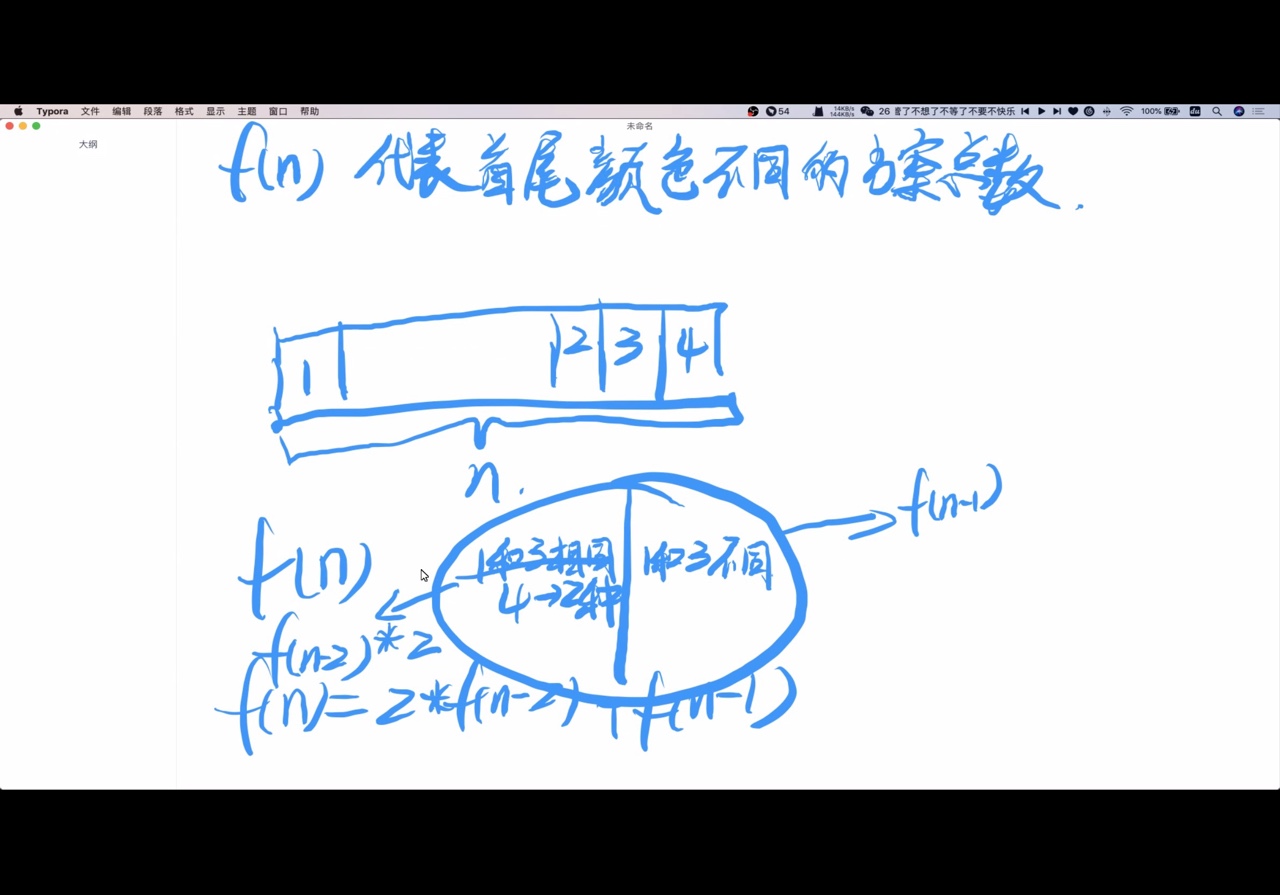 Typora 文件 编辑 段落 格式 显示 主题 窗口 帮助
54 14KB/s 144KB/s 26 了不想了不等了不要不快乐 100% du
未命名
大纲
f(n) 代表首尾颜色不同的方案总数.
1 2 3 4
n.
f(n-1)
1和3相同 1和3不同
4→2种
f(n)
f(n-2)*2
f(n)=2*f(n-2)+f(n-1)